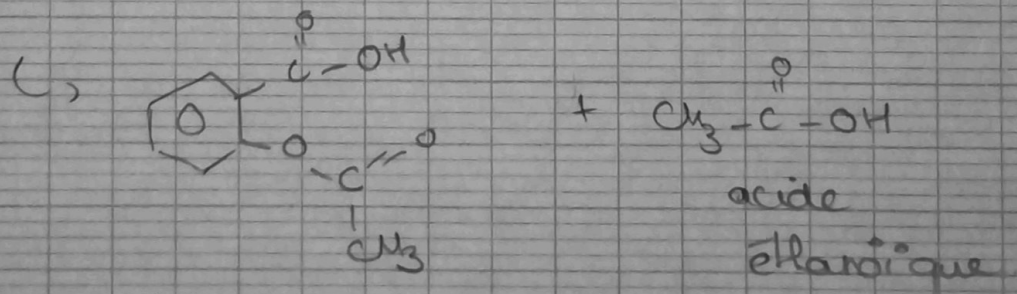 C)
O
C-OH
O
O
C=O
CH3
+ CH3-C-OH
O
acide
éthanoïque